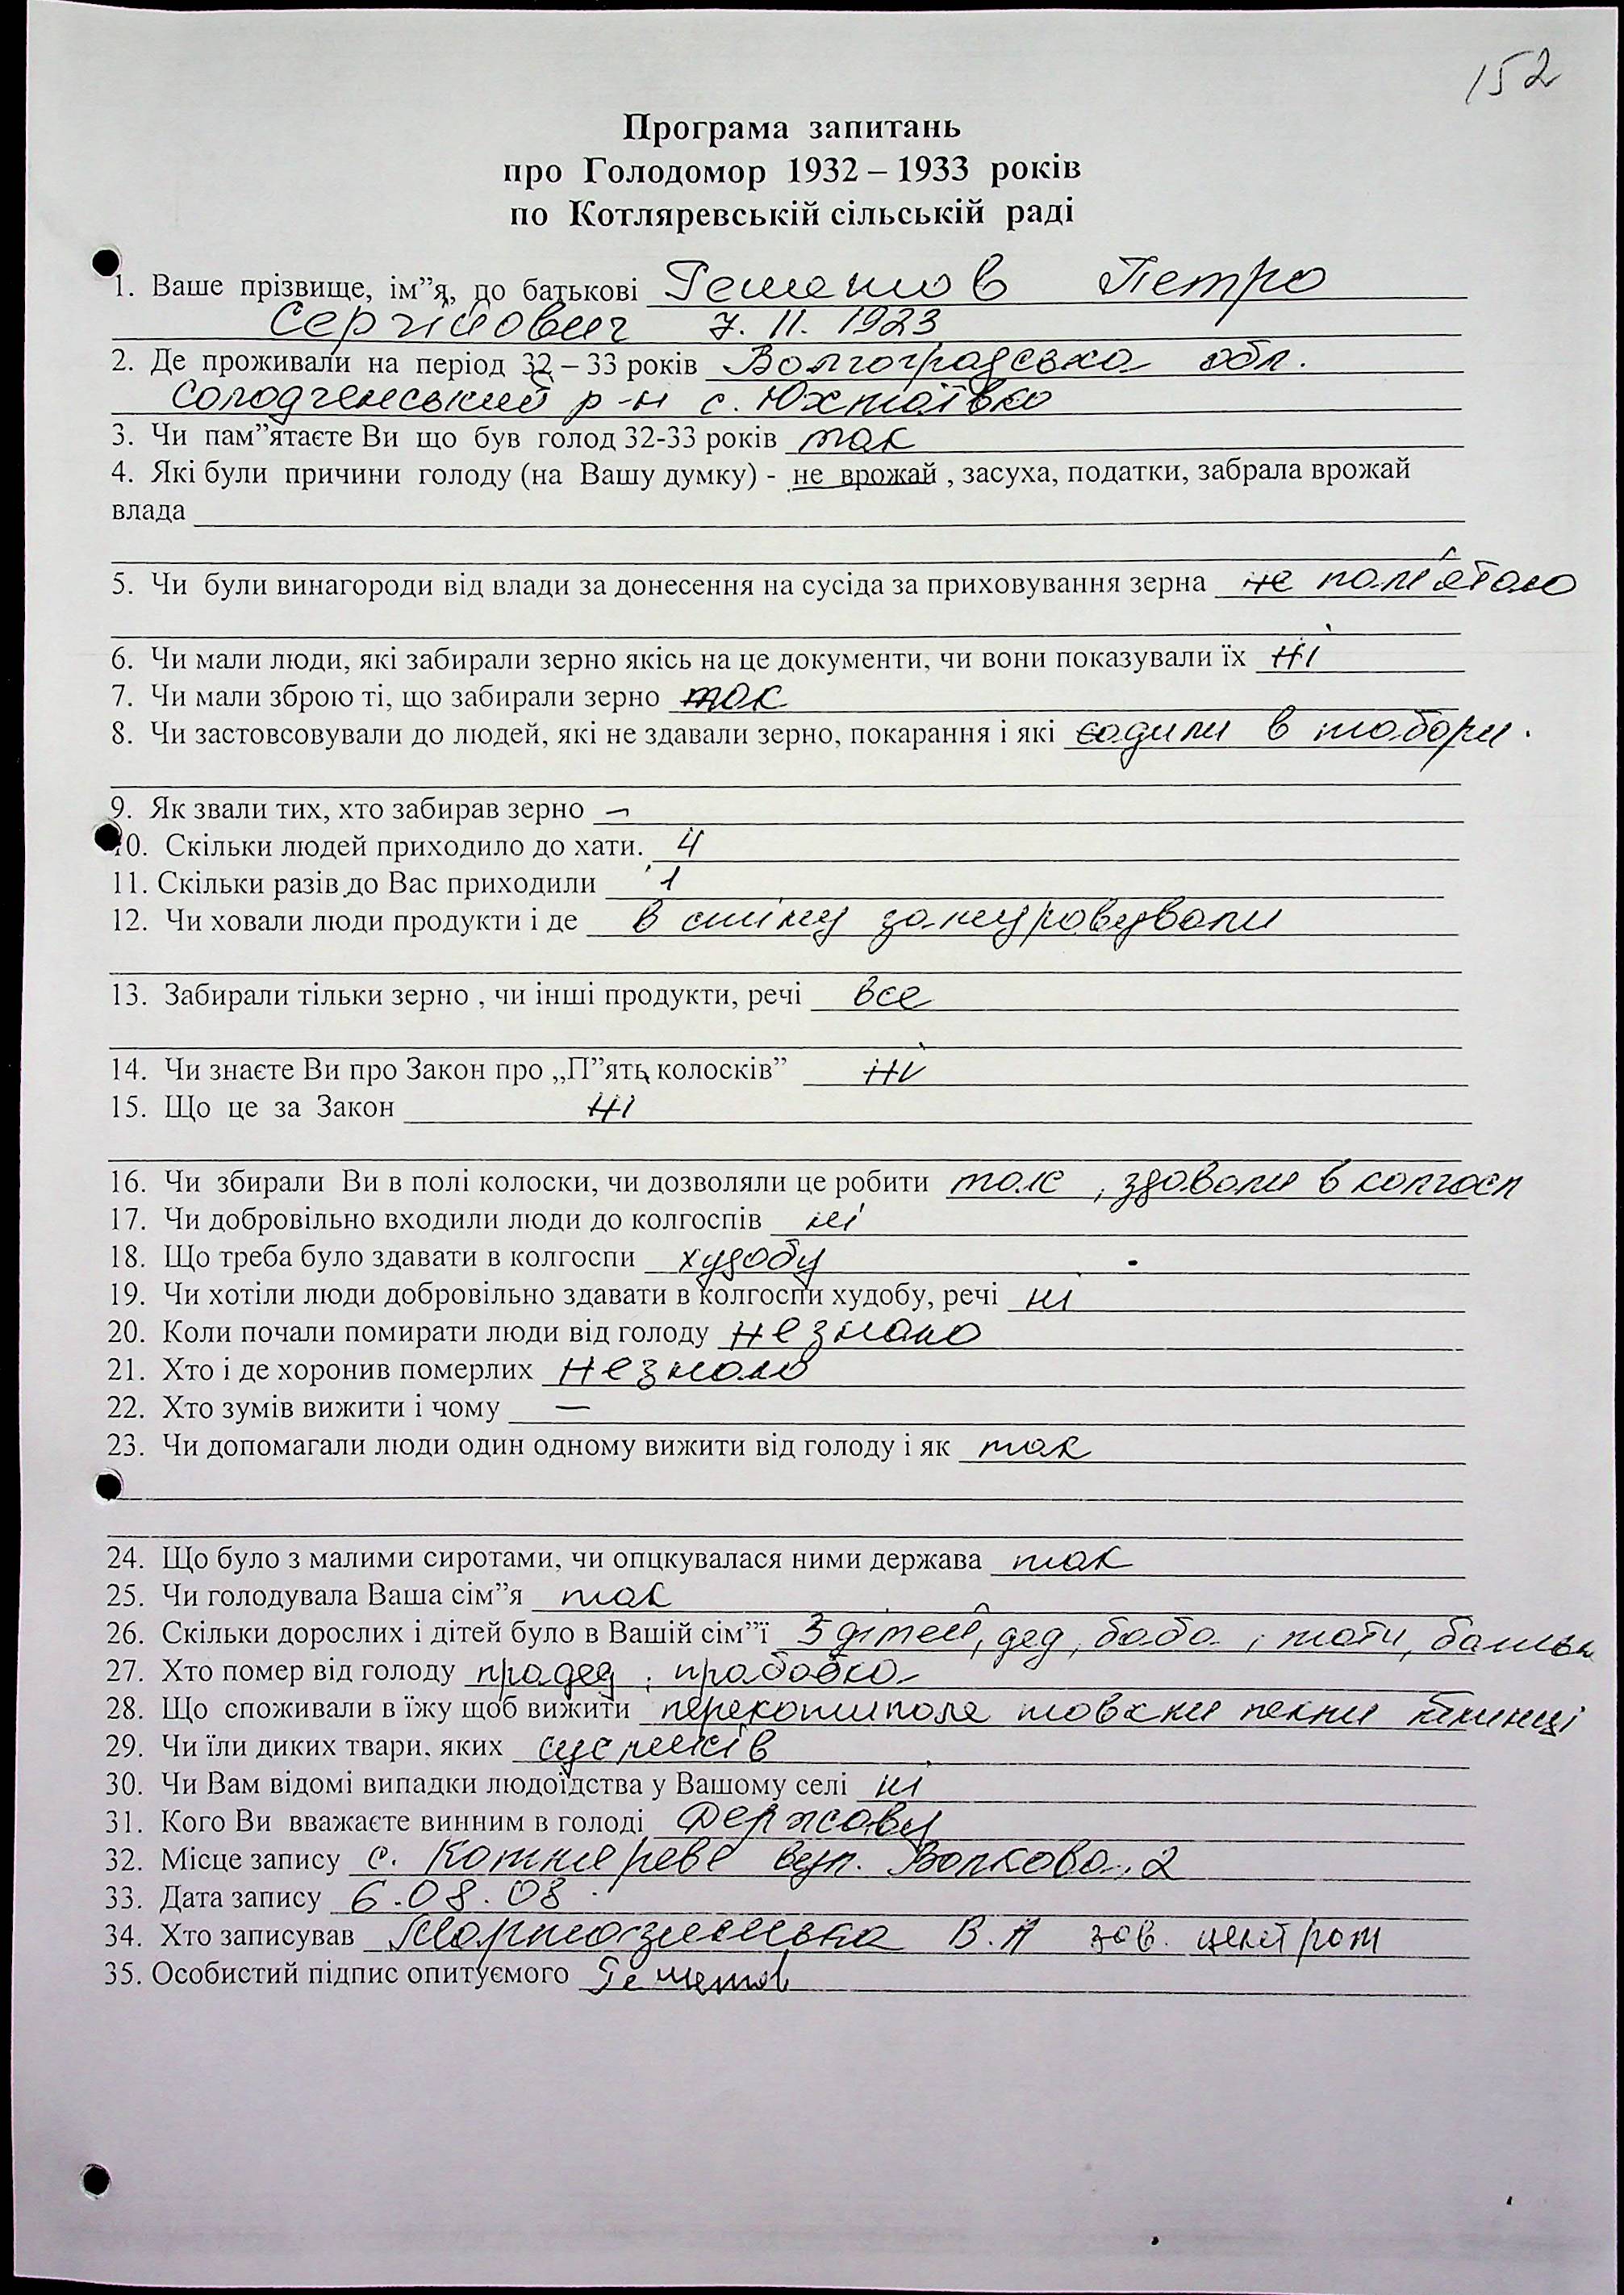 152
Програма запитань
про Голодомор 1932 – 1933 років
по Котляревській сільській раді
1. Ваше прізвище, ім"я, по батькові Решетов Петро
Сергійович 7. 11. 1923
2. Де проживали на період 32 – 33 років Волгоградська обл.
Солодченський р-н с. Юхтаївка
3. Чи пам"ятаєте Ви що був голод 32-33 років так
4. Які були причини голоду (на Вашу думку) - не врожай , засуха, податки, забрала врожай
влада
5. Чи були винагороди від влади за донесення на сусіда за приховування зерна не пам'ятаю
6. Чи мали люди, які забирали зерно якісь на це документи, чи вони показували їх ні
7. Чи мали зброю ті, що забирали зерно так
8. Чи застовсовували до людей, які не здавали зерно, покарання і які садили в табори.
9. Як звали тих, хто забирав зерно –
10. Скільки людей приходило до хати. 4
11. Скільки разів до Вас приходили 1
12. Чи ховали люди продукти і де в стіну замуровували
13. Забирали тільки зерно , чи інші продукти, речі все
14. Чи знаєте Ви про Закон про „П"ять колосків" ні
15. Що це за Закон ні
16. Чи збирали Ви в полі колоски, чи дозволяли це робити так , здавали в колгосп
17. Чи добровільно входили люди до колгоспів ні
18. Що треба було здавати в колгоспи худобу
19. Чи хотіли люди добровільно здавати в колгоспи худобу, речі ні
20. Коли почали помирати люди від голоду не знаю
21. Хто і де хоронив померлих не знаю
22. Хто зумів вижити і чому —
23. Чи допомагали люди один одному вижити від голоду і як так
24. Що було з малими сиротами, чи опцкувалася ними держава так
25. Чи голодувала Ваша сім"я так
26. Скільки дорослих і дітей було в Вашій сім"ї 3 дітей, дед, баба, мати, батько
27. Хто помер від голоду прадед , прабабка
28. Що споживали в їжу щоб вижити перекотиполе товкли пекли млинці
29. Чи їли диких твари, яких сусликів
30. Чи Вам відомі випадки людоїдства у Вашому селі ні
31. Кого Ви вважаєте винним в голоді Державу
32. Місце запису с. Котляреве вул. Волкова, 2
33. Дата запису 6.08.08
34. Хто записував В.А зав. центром
35. Особистий підпис опитуємого Решетов